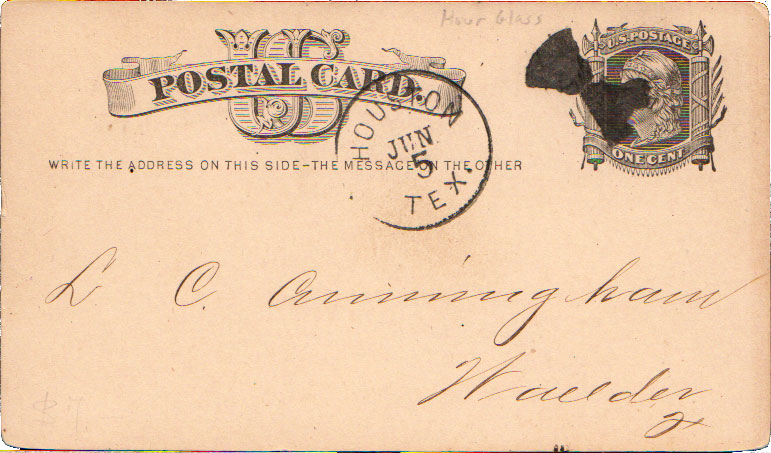 Hour Glass
U.S. POSTAGE
POSTAL CARD
HOUSTON
JUN
5
TEX.
ONE CENT
WRITE THE ADDRESS ON THIS SIDE–THE MESSAGE ON THE OTHER
L C Cunningham
Waelder
$7